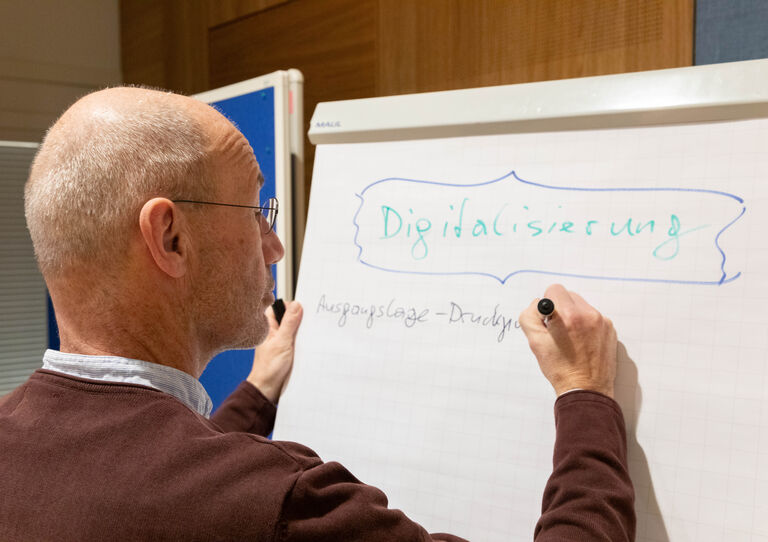 MAUL
Digitalisierung
Ausgangslage - Druckgu